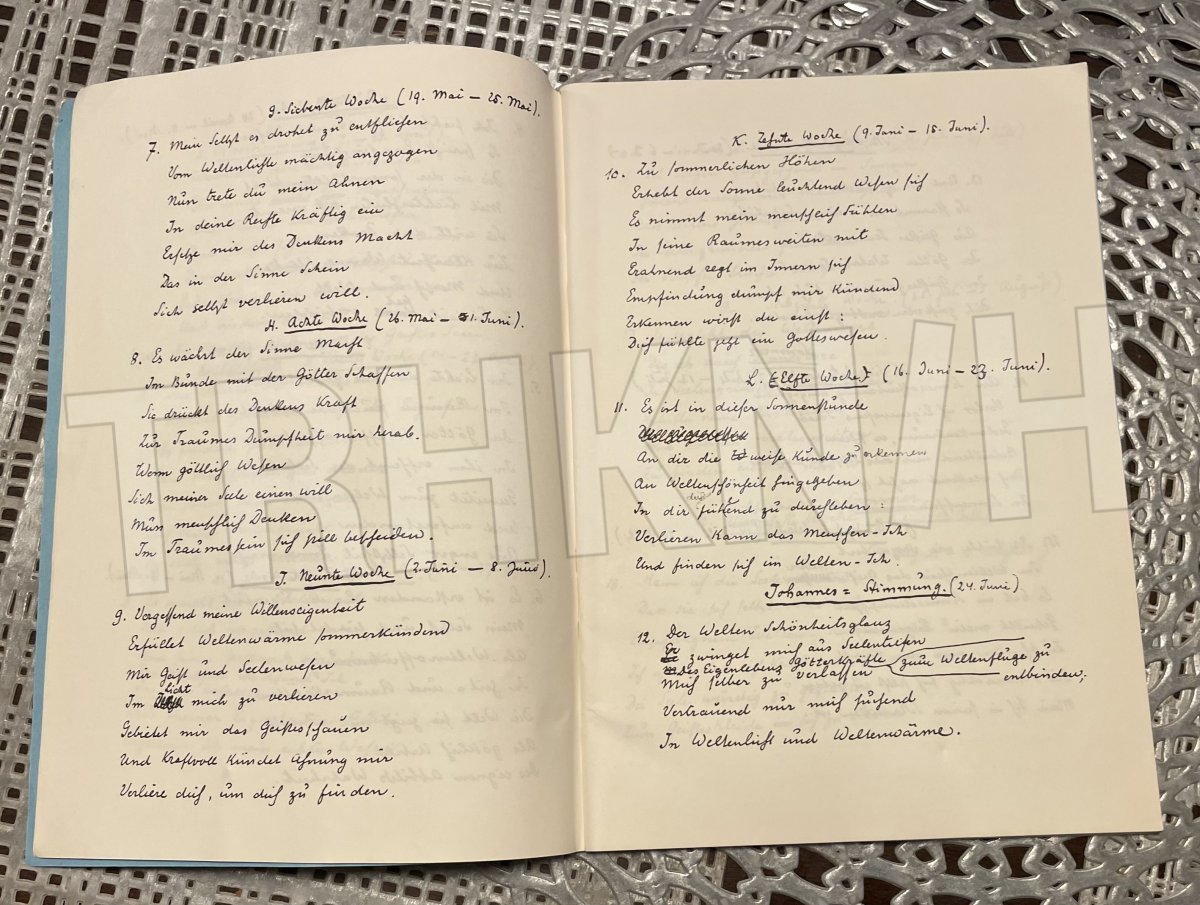 G. Siebente Woche (19. Mai – 25. Mai).
7. Mein Selbst es drohet zu entfliehen
Vom Weltenlichte mächtig angezogen
Nun trete du mein Ahnen
In deine Rechte kräftig ein
Ersetze mir des Denkens Macht
Das in der Sinne Schein
Sich selbst verlieren will.
H. Achte Woche (26. Mai – 1. Juni).
8. Es wächst der Sinne Macht
Im Bunde mit der Götter Schaffen
Sie drückt des Denkens Kraft
Zur Traumes Dumpfheit mir herab.
Wenn göttlich Wesen
Sich meiner Seele einen will
Muss menschlich Denken
Im Traumessein sich still bescheiden.
J. Neunte Woche (2. Juni – 8. Juni).
9. Vergessend meine Willenseigenheit
Erfüllet Weltenwärme sommerkündend
Mir Geist und Seelenwesen
Im Licht mich zu verlieren
Gebietet mir das Geistesschauen
Und kraftvoll kündet Ahnung mir
Verliere dich, um dich zu finden.
K. Zehnte Woche (9. Juni – 15. Juni).
10. Zu sommerlichen Höhen
Erhebt der Sonne leuchtend Wesen sich
Es nimmt mein menschlich Fühlen
In seine Raumesweiten mit
Erahnend regt im Innern sich
Empfindung dumpf mir kündend
Erkennen wirst du einst:
Dich fühlte jetzt ein Gotteswesen.
L. (Elfte Woche) (16. Juni – 23. Juni).
11. Es ist in dieser Sonnenstunde
An dir die weise Kunde zu erkennen
An Weltenschönheit hingegeben
In dir dich fühlend zu durchleben:
Verlieren kann das Menschen-Ich
Und finden sich im Welten-Ich.
Johannes=Stimmung. (24. Juni)
12. Der Welten Schönheitsglanz
Er zwinget mich aus Seelentiefen
Des Eigenlebens Götterkräfte zum Weltenfluge zu
entbinden;
Mich selber zu verlassen
Vertrauend nur mich suchend
In Weltenlicht und Weltenwärme.
TRHKNVH